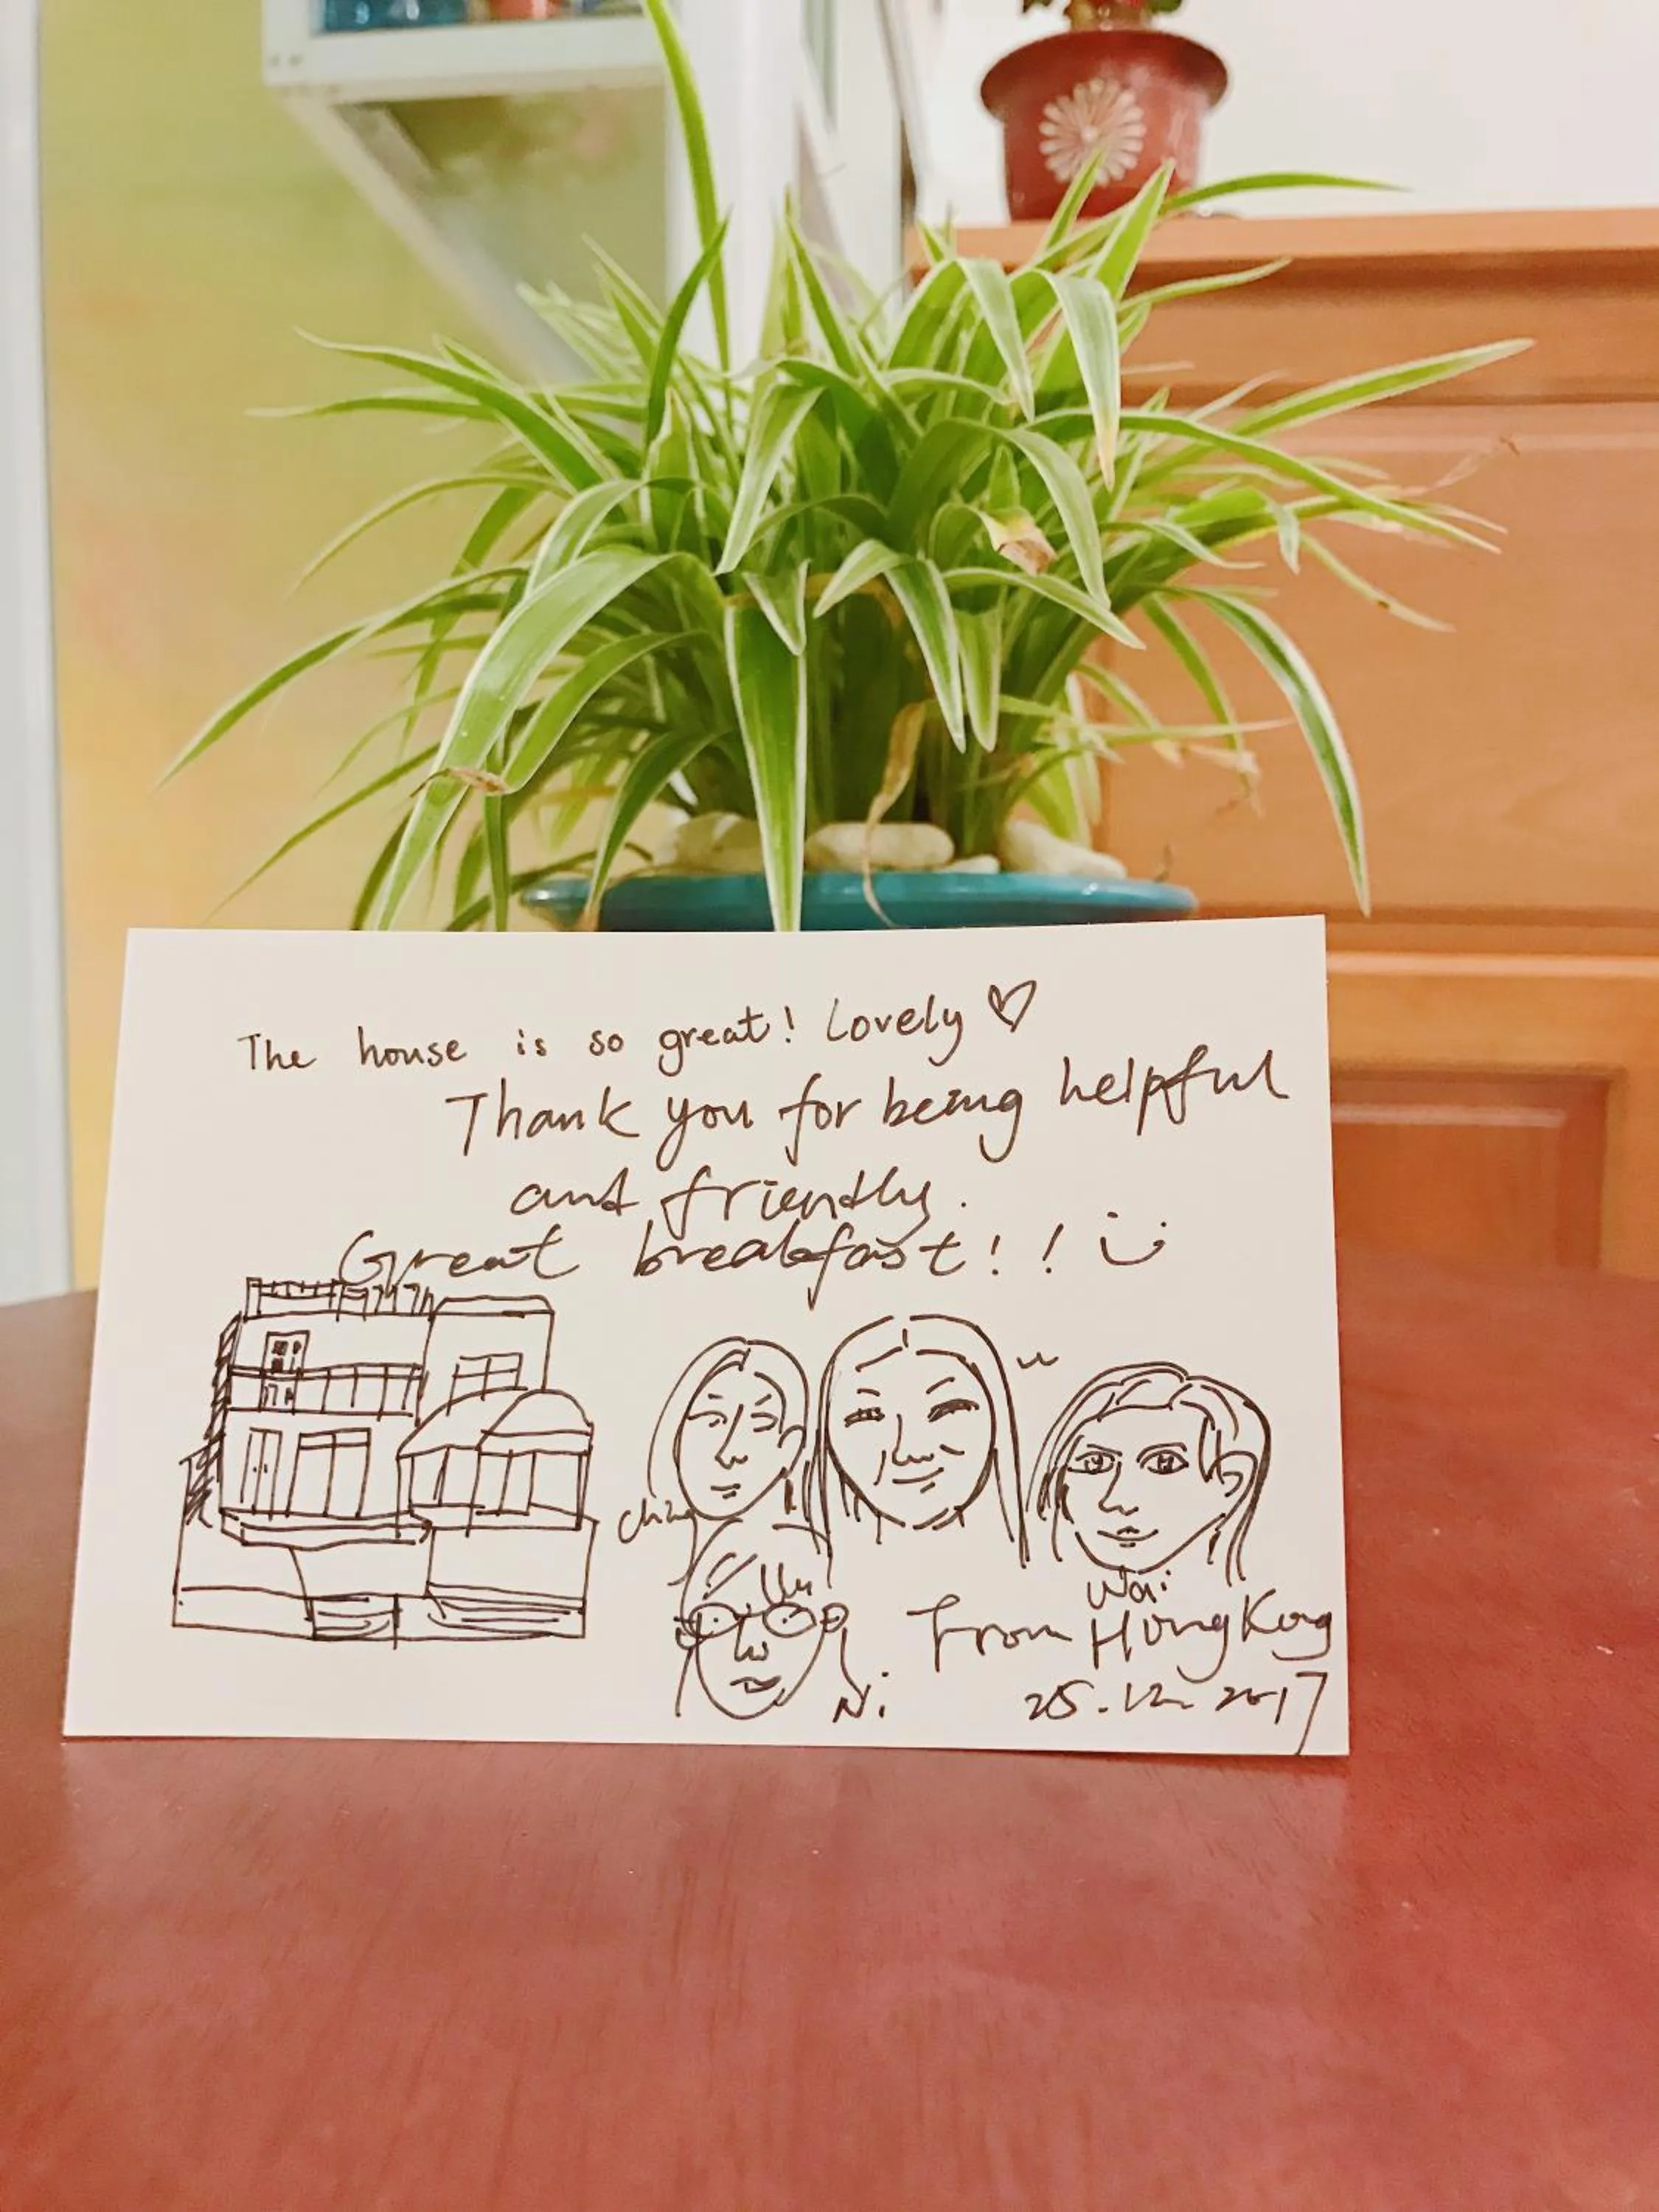 The house is so great! Lovely ♡
Thank you for being helpful
and friendly.
Great breakfast!!
Wai
From HongKong
Ni
25.12.2017